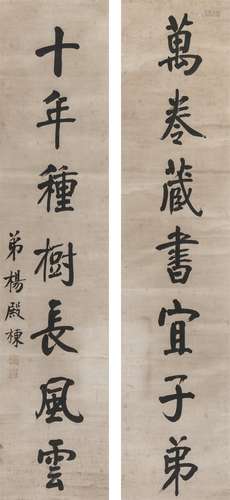 萬卷藏書宜子弟
十年種樹長風雲
弟楊殿棟